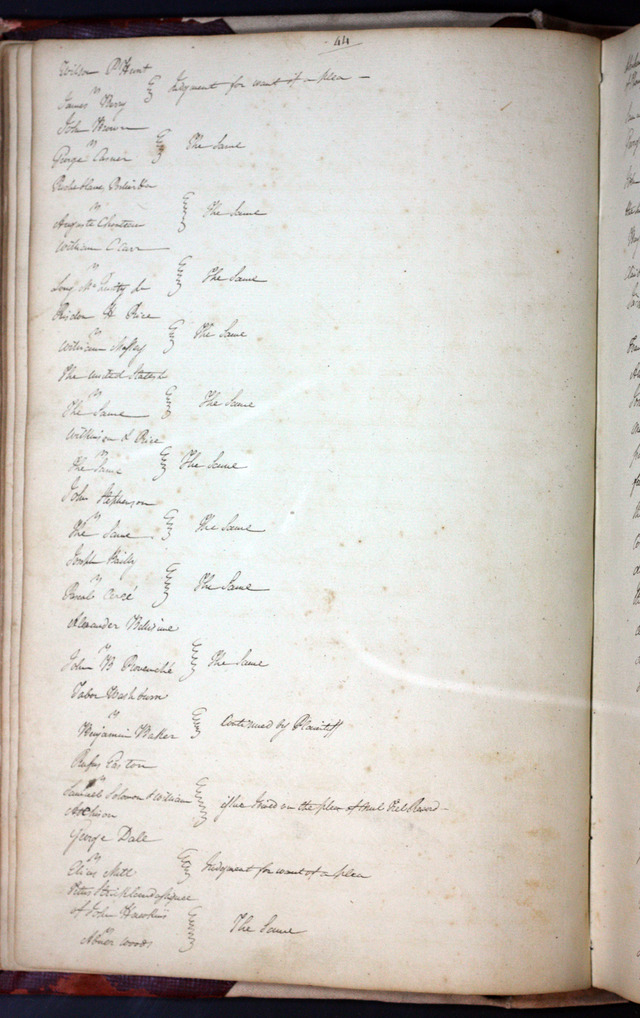 44
Wilson P Hunt
vs Judgment for want of a plea —
James Berry
John Brown
vs The Same
George Casner
vs The Same
Auguste Chouteau
William C Carr
vs The Same
Risdon H Price
vs The Same
William Massey
The United States
vs The Same
The Same
Wilkinson & Price
vs The Same
The Same
John Stephenson
vs The Same
The Same
Joseph
vs The Same
Pascal Cerré
Alexander
vs The Same
John B Provenché
Tabor Washburn
vs Continued by Plaintiff
Benjamin Baker
Rufus Easton
vs
Samuel Solomon & William issue Joined on the plea of Nul Tiel Record —
Atchison
George Dale
vs Judgment for want of a plea
Elias
Peter assignee
of John Hawkins
vs The Same
Abner Woods